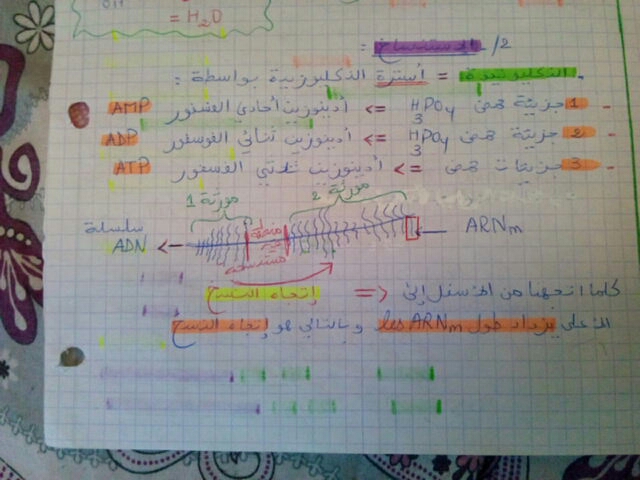 OH
= H₂O
2/ الإستنساخ :
النكليوتيدة = أسترة النكليوزيدة بواسطة :
- 1 جزيئة حمض H₃PO₄ <= أدينوزين أحادي الفسفور AMP
- 2 جزيئة حمض H₃PO₄ <= أدينوزين ثنائي الفوسفور ADP
- 3 جزيئات حمض <= أدينوزين ثلاثي الفسفور ATP
مورثة 1 مورثة 2
سلسلة ADN منطقة غير مستنسخة ARNm
كلما اتجهنا من الأسفل إلى => إتجاه النسخ
الأعلى يزداد طول les ARNm وبالتالي هو إتجاه النسخ